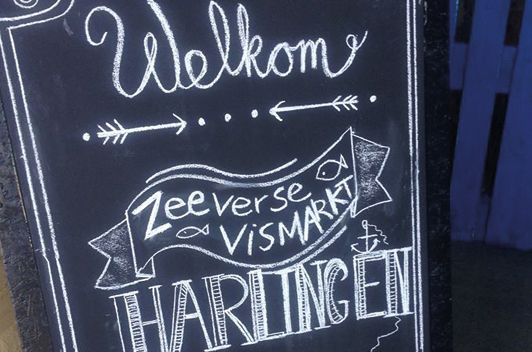 Welkom
Zeeverse
VISMARKT
HARLINGEN